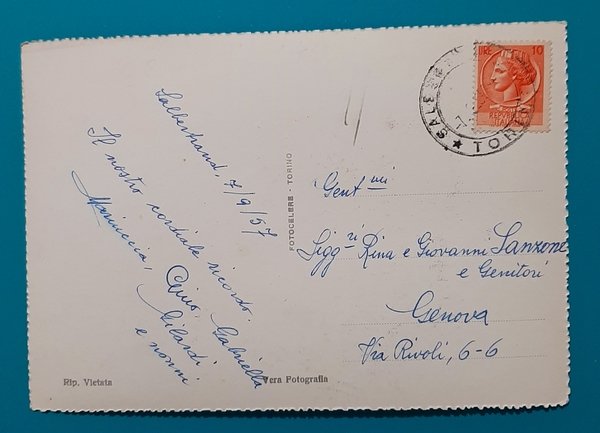 Salbertrand, 7/9/57
Il nostro cordiale ricordo.
Mariuccia, Gino, Gabriella
Gilardi
e nonni
FOTOCELERE - TORINO
LIRE 10
REPUBBLICA
ITALIANA
SALB
TORINO
Gent.mi
Sigg.ri Rina e Giovanni Sanzone
e Genitori
Genova
Via Rivoli, 6-6
Rip. Vietata
Vera Fotografia